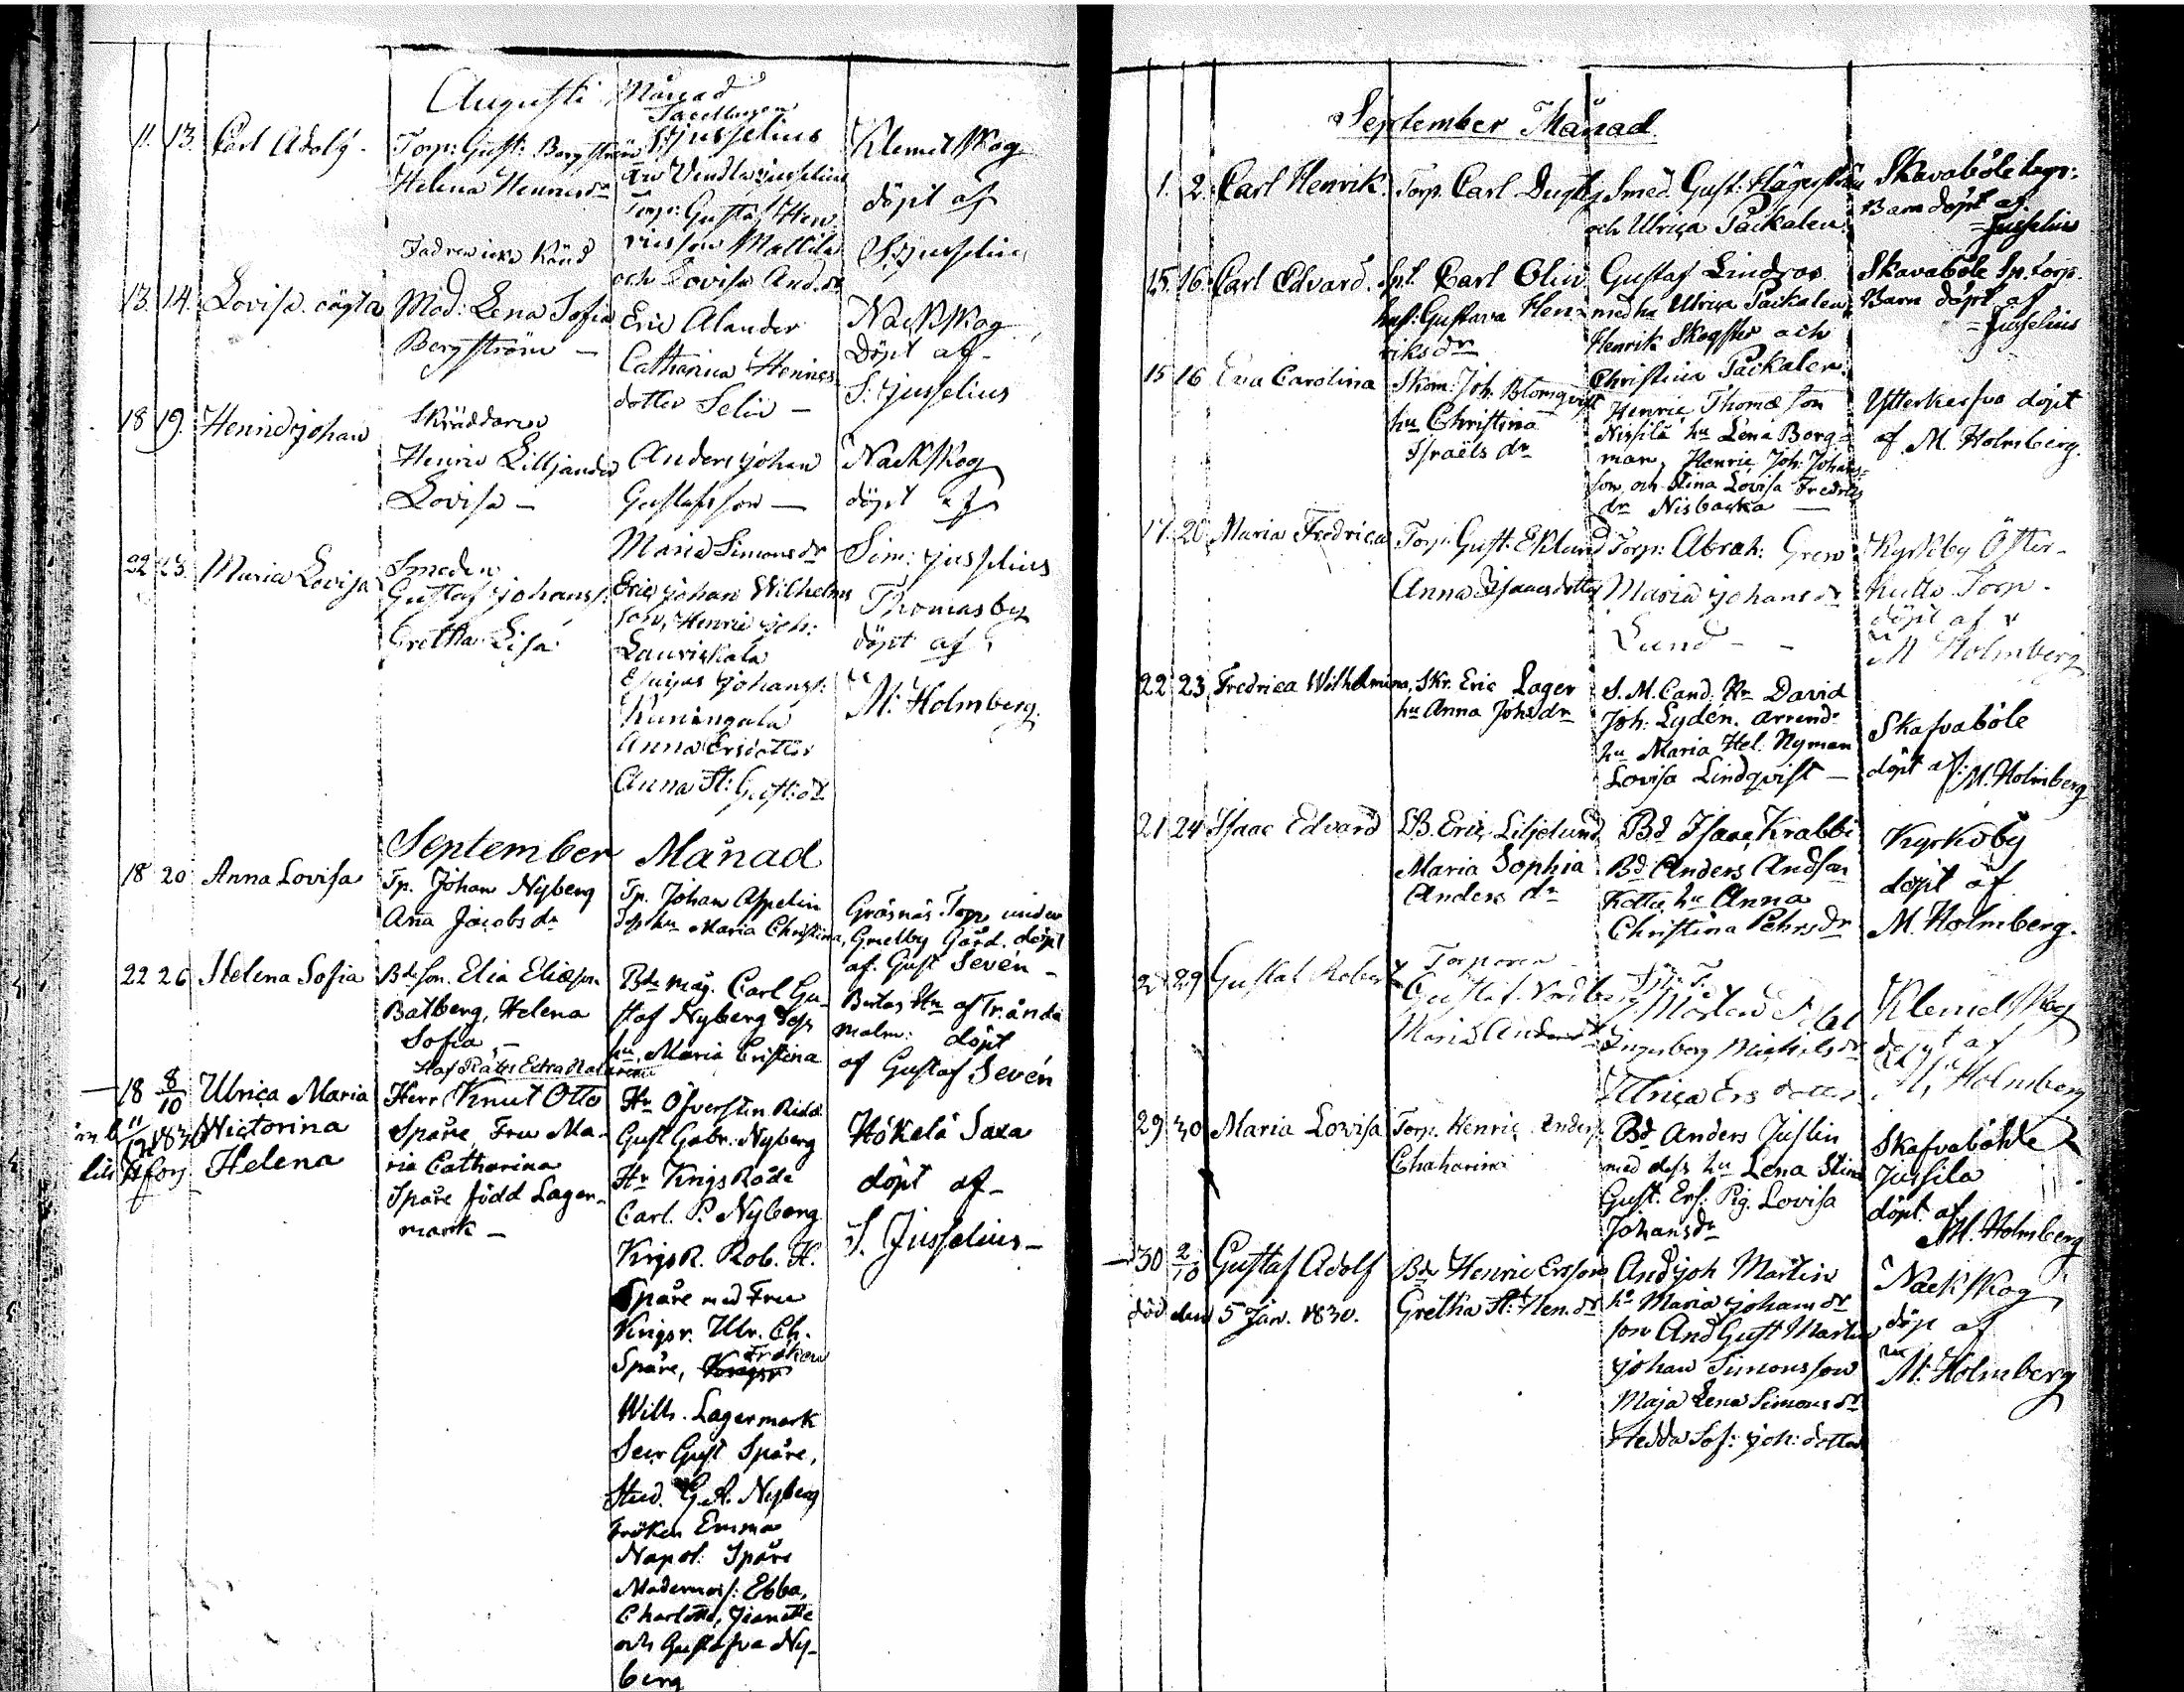 Augusti Månad
11. 13. Carl Adolf.
Torp: Gust: Bergström
Helena Henricsdr
S: Jusselius
Fru Vendla Jusselius
Torp: Gustaf Hen-
ricsson Mattila
och Lovisa And. dr
Klemetskog
döpt af
S: Jusselius
Fadren icke Känd
13. 14. Lovisa. oägta
Mod: Lena Sofia
Bergström —
Eric Alander
Catharina Henrics
dotter Selin —
Nackskog
döpt af
S: Jusselius
18 19. Henric Johan
Skräddaren
Henric Lilljander
Lovisa —
Anders Johan
Gustafsson —
Maria Simonsdr
Nackskog
döpt af
Sim: Jusselius
22 23. Maria Lovisa
Smeden
Gustaf Johanss:
Gretha Lisa
Eric Johan Wilhelms
son, Henric Joh:
Lauriskala
Johanss:
Kuningala
Anna Ersdotter
Anna St: Gust: dr
Thomasby
döpt af
M: Holmberg.
September Månad
18 20 Anna Lovisa
Tp. Johan Nyberg
Aña Jacobs dr
Tp. Johan Aspelin
Dess hu Maria Christina,
Gräsnäs Torp under
Gård. döpt
af. Gust Sevén —
22 26 Helena Sofia
Bde son. Elia Eliæson
Batberg, Helena
Sofia —
Bde måg. Carl Gu-
staf Nyberg Dess
hu, Maria Cristina
malm: döpt
af Gustaf Sevén
Hof Rätts Extra Notarien
— 18 8/10 Ulrica Maria
Wictorina
Helena
1830
Herr Knut Otto
Spåre, Fru Ma-
ria Catharina
Spåre född Lager-
mark —
Hr Öfversten Ridd.
Gust Gabr. Nyberg
Hr Krigs Råde
Carl. P. Nyberg
KrigsR. Rob. H.
Spåre med Fru
Krigsr. Ulr. Ch.
Fröken
Spåre,
Wilh. Lagermark
Gust Spåre,
Stud. G. A. Nyberg
Fröken Emma
Napol: Spåre
Mademois: Ebba,
Charlotta, Jeanette
och Gustafva Ny-
berg
Hökelä Saxa
döpt af —
S. Jusselius —
September Månad.
1. 2. Carl Henrik.
Torp. Carl Dugby
Smed. Gust: Hägerström
och Ulrica Packalen.
Skavaböle torp:
Barn döpt af
= Jusselius
15. 16. Carl Edvard.
Spl. Carl Olin
hust: Gustava Hen-
riks dr
Gustaf Lindros
med hu Ulrica Packalen
Henrik Skogster och
Christina Packalen.
Skavaböle Sp. torp.
Barn döpt af
= Jusselius
15 16 Eva Carolina
Skom: Joh. Blomqvist
hu Christina
Israëls dr
Henric Thomæ son
Nissilä hu Lena Borg-
man, Henric Joh: Johans-
son och Stina Lovisa Fredrics
dr Nisbacka —
Ytterkerfva döpt
af M. Holmberg.
17. 20 Maria Fredrica
Torp: Gust: Eklund
Anna Isaacsdotter
Torp: Abrah: Gren
Maria Johansdr
Lund — —
Kyrkby Öster-
Torp.
döpt af
M Holmberg
22 23 Fredrica Wilhelmina,
Skr. Eric Lager
hu Anna Johs dr
S. M. Cand. Hr David
Joh: Lydén. arrend:
hu Maria Hel: Nyman
Lovisa Lindqvist —
Skafvaböle
döpt af: M. Holmberg
21 24 Isaac Edvard
LB. Eric Liljelund
Maria Sophia
Anders dr
Bd Isaac Krabbi
Bd Anders Andsson
hu Anna
Christina Pehrsdr
Kyrkoby
döpt af
M. Holmberg.
29 Gustaf Robert
Torparen
Gustaf Nordberg
Maria Andersdr
Mårten
Ingeborg Michelsdr
Ulrica Ersdotter
Klemetskog
döpt af
M: Holmberg
29 30 Maria Lovisa
Torp. Henric Anders:
Chatarina
Bd Anders Juslin
med dess hu Lena Stina
Gust. Ers: Pig. Lovisa
Johansdr
Skafvaböhle
Jussila
döpt af
M. Holmberg
— 30 2/10 Gustaf Adolf
död den 5 Jan. 1830.
Bde Henric Ersson
Gretha St: Hen. dr
And Joh Martin
hu Maria Johans dr
son And Gust Martin
Johan Simonsson
Maja Lena Simonsdr
Hedda Sof: Joh: dotter
Nackskog
döp af
M: Holmberg